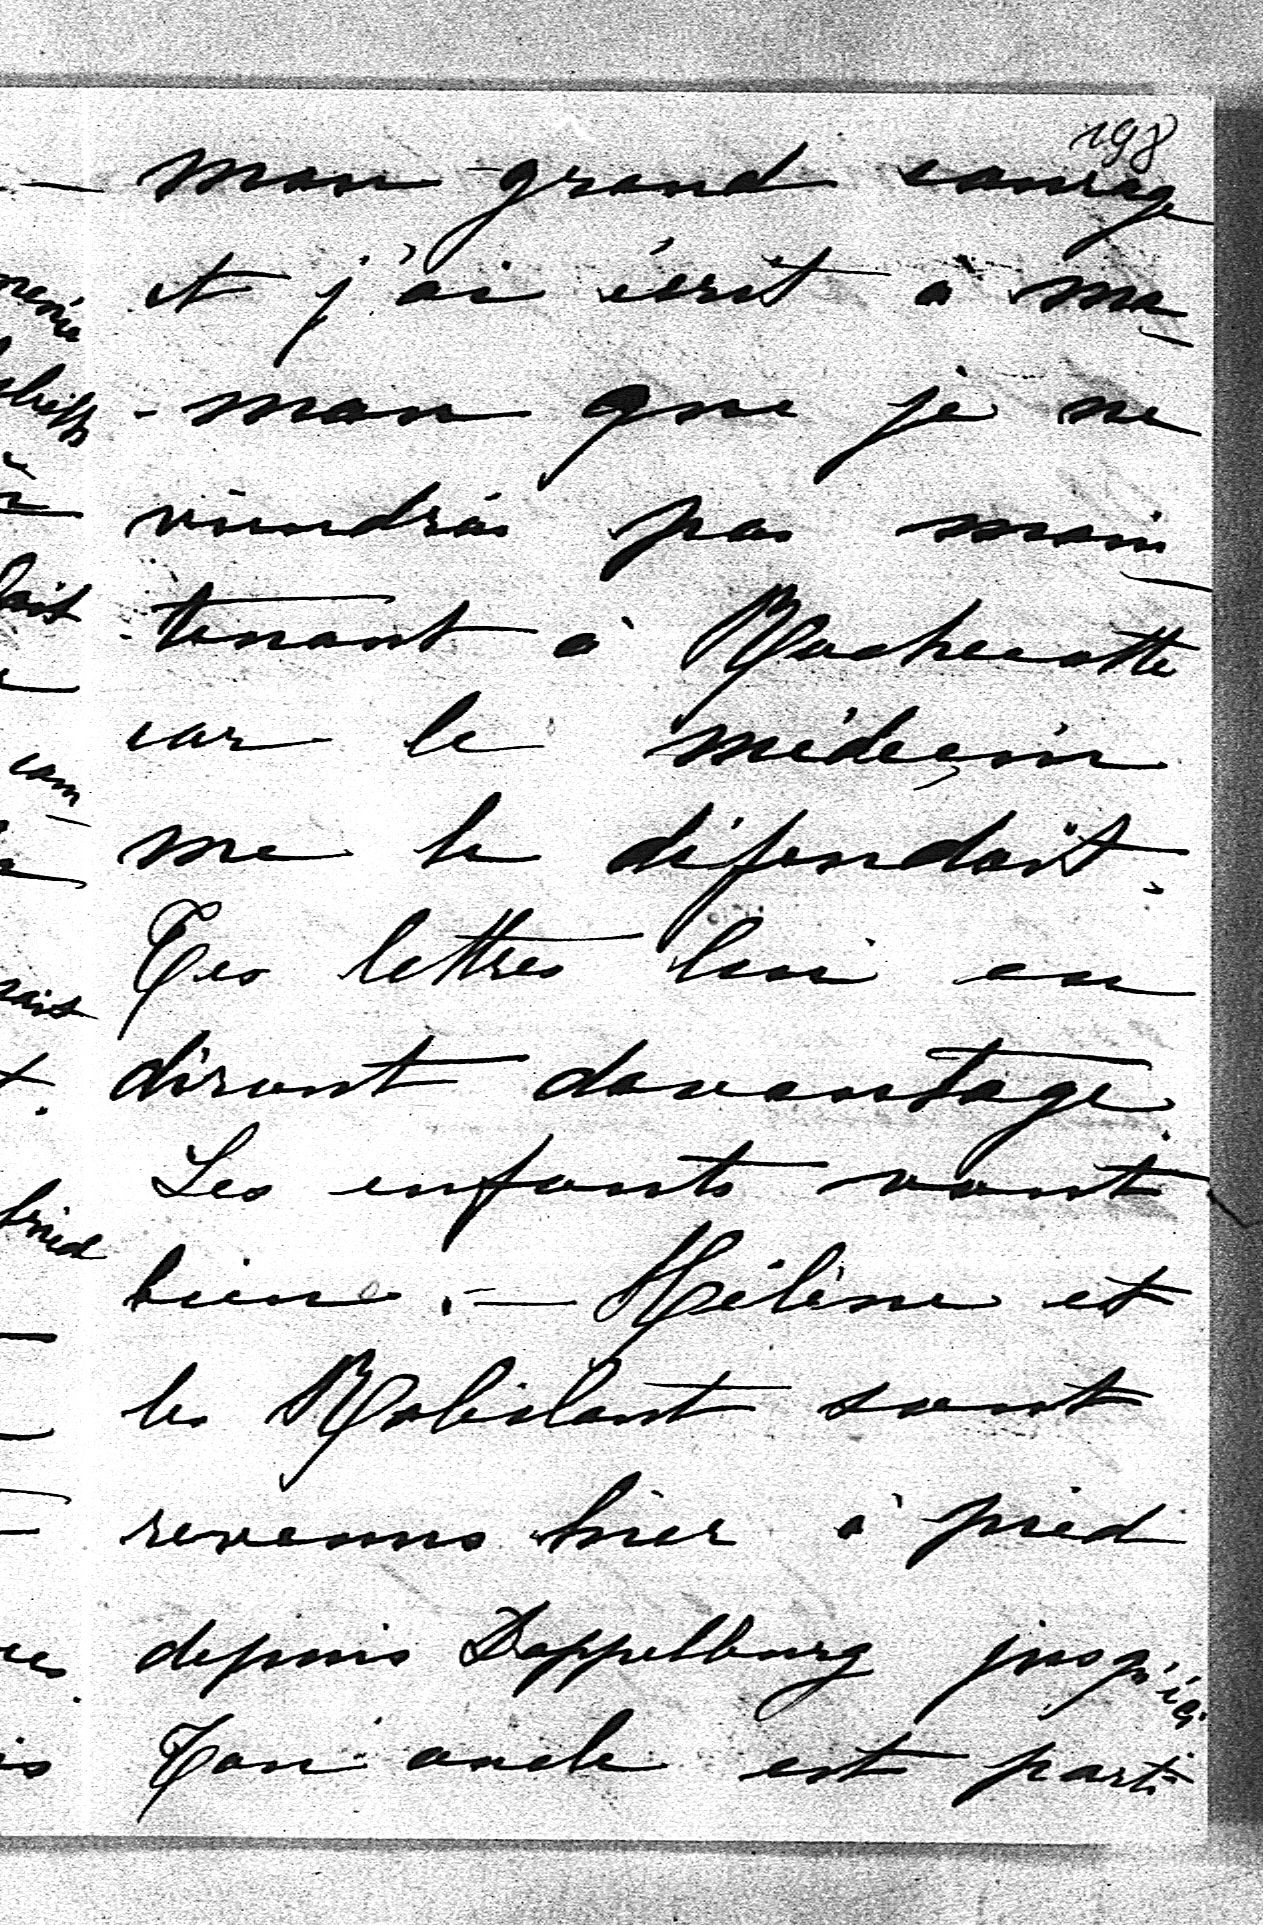 198
mon grand courage
et j'ai écrit à ma
-man que je ne
viendrais pas main
tenant à Rochecotte
car le médecin
me le défendait.
Tes lettres lui en
diront davantage.
Les enfants vont
bien. — Hélène et
les Robilant sont
revenus hier à pied
depuis Doppelburg jusqu'ici
Ton oncle est parti